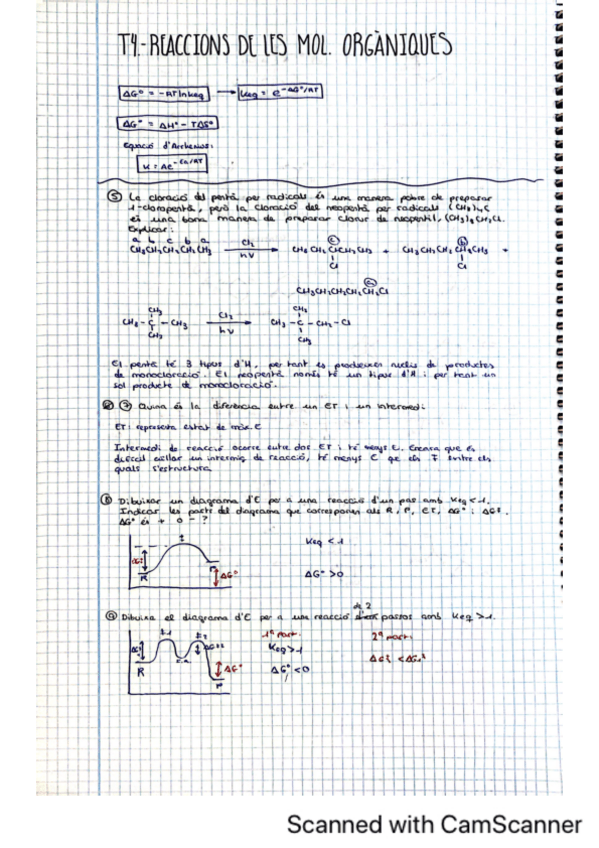 T4.-REACCIONS DE LES MOL. ORGÀNIQUES
ΔG° = -RTlnKeq → Keq = e^-ΔG°/RT
ΔG° = ΔH° - TΔS°
Equació d'Arrhenius:
K = Ae^-Ea/RT
⑤ La cloració del pentà per radicals és una manera pobre de preparar
1-cloropentà, però la cloració del neopentà per radicals (CH3)4C
és una bona manera de preparar clorur de neopentil, (CH3)3CH2Cl.
Explicar:
a b c b a
CH3CH2CH2CH2CH3 Cl2 hν CH3CH2CHCH2CH3 + CH3CH2CH2CHCH3 +
Cl Cl
CH3CH2CH2CH2CH2Cl
CH3 CH3
CH3-C-CH3 Cl2 hν CH3-C-CH2-Cl
CH3 CH3
El pentà té 3 tipus d'H, per tant es produeixen de productes
de monocloració. El neopentà només té un tipus d'H i per tant un
sol producte de monocloració.
⑦ Quina és la diferència entre un ET i un intermedi
ET: representa estat de màx. E
Intermedi de reacció ocorre entre dos ET i té menys E. Encara que és
difícil aïllar un intermig de reacció, té menys E
quals s'estructura.
⑧ Dibuixar un diagrama d'E per a una reacció d'un pas amb Keq<1.
Indicar les parts del diagrama que corresponen als R, P, ET, ΔG° i ΔG‡.
ΔG° és + o - ?
‡ Keq < 1
ΔG‡ P
R ΔG° ΔG° >0
⑨ Dibuixa el diagrama d'E per a una reacció de 2 passos amb Keq >1.
1ª part: 2ª part:
Keq>1
R ΔG° ΔG°<0
P